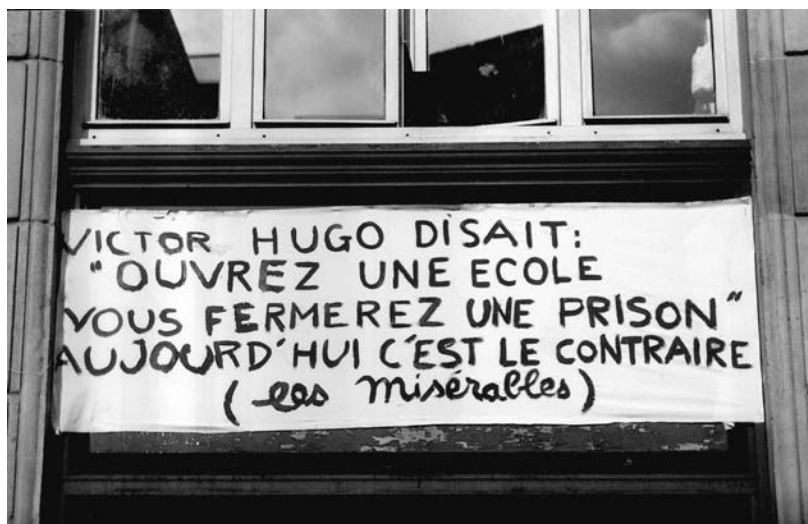 VICTOR HUGO DISAIT:
"OUVREZ UNE ECOLE
VOUS FERMEREZ UNE PRISON"
AUJOURD'HUI C'EST LE CONTRAIRE
(les misérables)